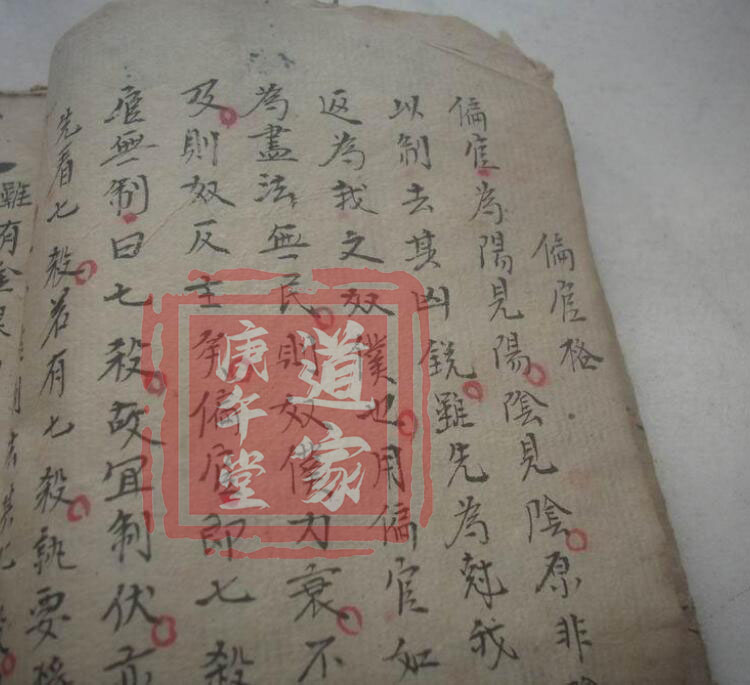 偏官格
偏官為陽見陽陰見陰原非
以制去其凶銳雖先為尅我
返為我之奴僕也用偏官如
為盡法無民則奴僕力衰不
及則奴反主偏官即七殺
官無制曰七殺故宜制伏
先看七殺若有七殺就要
雖有金
道家
庚午堂